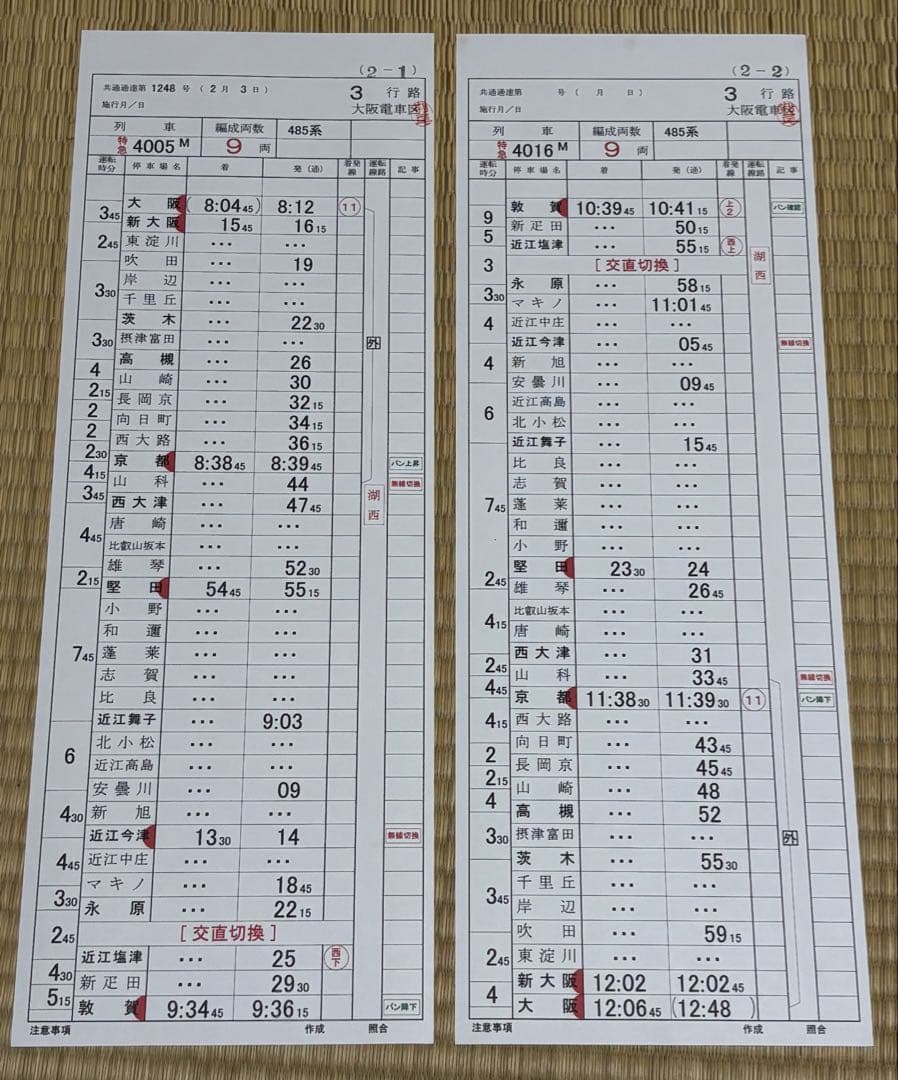 (2-1)
共通通達第 1248 号 (2月 3日)
3 行路
施行月/日
大阪電車区
列車 編成両数 485系
特急 4005M 9両
運転時分 停車場名 着 発(通) 着発線 運転線路 記事
大阪 (8:04 45) 8:12 11
3 45
新大阪 15 45 16 15
2 45
東淀川 ... ...
吹田 ... 19
岸辺 ... ...
3 30
千里丘 ... ...
茨木 ... 22 30
3 30
摂津富田 ... ...
外
高槻 ... 26
4
山崎 ... 30
2 15
長岡京 ... 32 15
2
向日町 ... 34 15
2
西大路 ... 36 15
2 30
京都 8:38 45 8:39 45 パン上昇
4 15
山科 ... 44 無線切換
3 45
西大津 ... 47 45
湖西
唐崎 ... ...
4 45
比叡山坂本 ... ...
雄琴 ... 52 30
2 15
堅田 54 45 55 15
小野 ... ...
和邇 ... ...
7 45
蓬莱 ... ...
志賀 ... ...
比良 ... ...
近江舞子 ... 9:03
北小松 ... ...
6
近江高島 ... ...
安曇川 ... 09
4 30
新旭 ... ...
近江今津 13 30 14 無線切換
4 45
近江中庄 ... ...
マキノ ... 18 45
3 30
永原 ... 22 15
2 45
[交直切換]
近江塩津 ... 25 西下
4 30
新疋田 ... 29 30
5 15
敦賀 9:34 45 9:36 15 パン降下
注意事項 作成 照合
(2-2)
共通通達第 号 ( 月 日)
3 行路
施行月/日
大阪電車区
列車 編成両数 485系
特急 4016M 9両
運転時分 停車場名 着 発(通) 着発線 運転線路 記事
敦賀 10:39 45 10:41 15 上2 パン確認
9
新疋田 ... 50 15
5
近江塩津 ... 55 15 西上
湖西
3
[交直切換]
永原 ... 58 15
3 30
マキノ ... 11:01 45
4
近江中庄 ... ...
近江今津 ... 05 45 無線切換
4
新旭 ... ...
安曇川 ... 09 45
近江高島 ... ...
6
北小松 ... ...
近江舞子 ... 15 45
比良 ... ...
志賀 ... ...
7 45
蓬莱 ... ...
和邇 ... ...
小野 ... ...
堅田 23 30 24
2 45
雄琴 ... 26 45
比叡山坂本 ... ...
4 15
唐崎 ... ...
西大津 ... 31
2 45
山科 ... 33 45 無線切換
4 45
京都 11:38 30 11:39 30 11 パン降下
4 15
西大路 ... ...
向日町 ... 43 45
2
長岡京 ... 45 45
2 15
山崎 ... 48
4
高槻 ... 52
3 30
摂津富田 ... ...
外
茨木 ... 55 30
千里丘 ... ...
3 45
岸辺 ... ...
吹田 ... 59 15
2 45
東淀川 ... ...
新大阪 12:02 12:02 45
4
大阪 12:06 45 (12:48)
注意事項 作成 照合